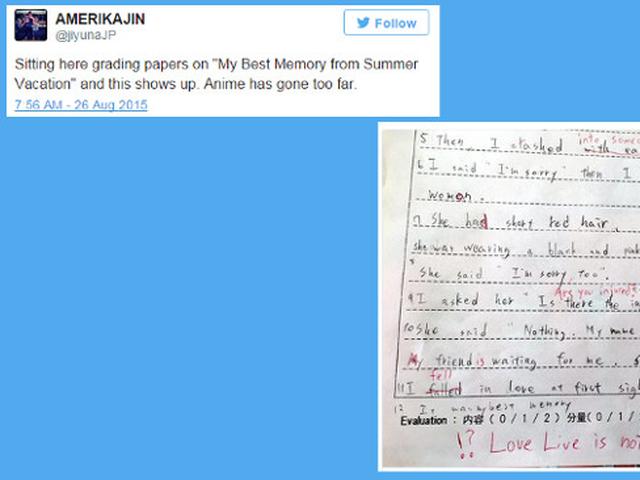 AMERIKAJIN
@jiyunaJP
Follow
Sitting here grading papers on "My Best Memory from Summer
Vacation" and this shows up. Anime has gone too far.
7:56 AM - 26 Aug 2015
into
5 Then I crashed with
6 I said "I'm sorry" then I
woman.
7 She had short red hair.
she was wearing a black and
8 She said "I'm sorry, too".
Are you injured?
9 I asked her "Is there the
10 She said "Nothing. My name
My friend is waiting for me,
fell
11 I falled in love at first
12 It was my best memory
Evaluation : 内容 ( 0 / 1 / 2 ) 分量( 0 / 1 /
!? Love Live is